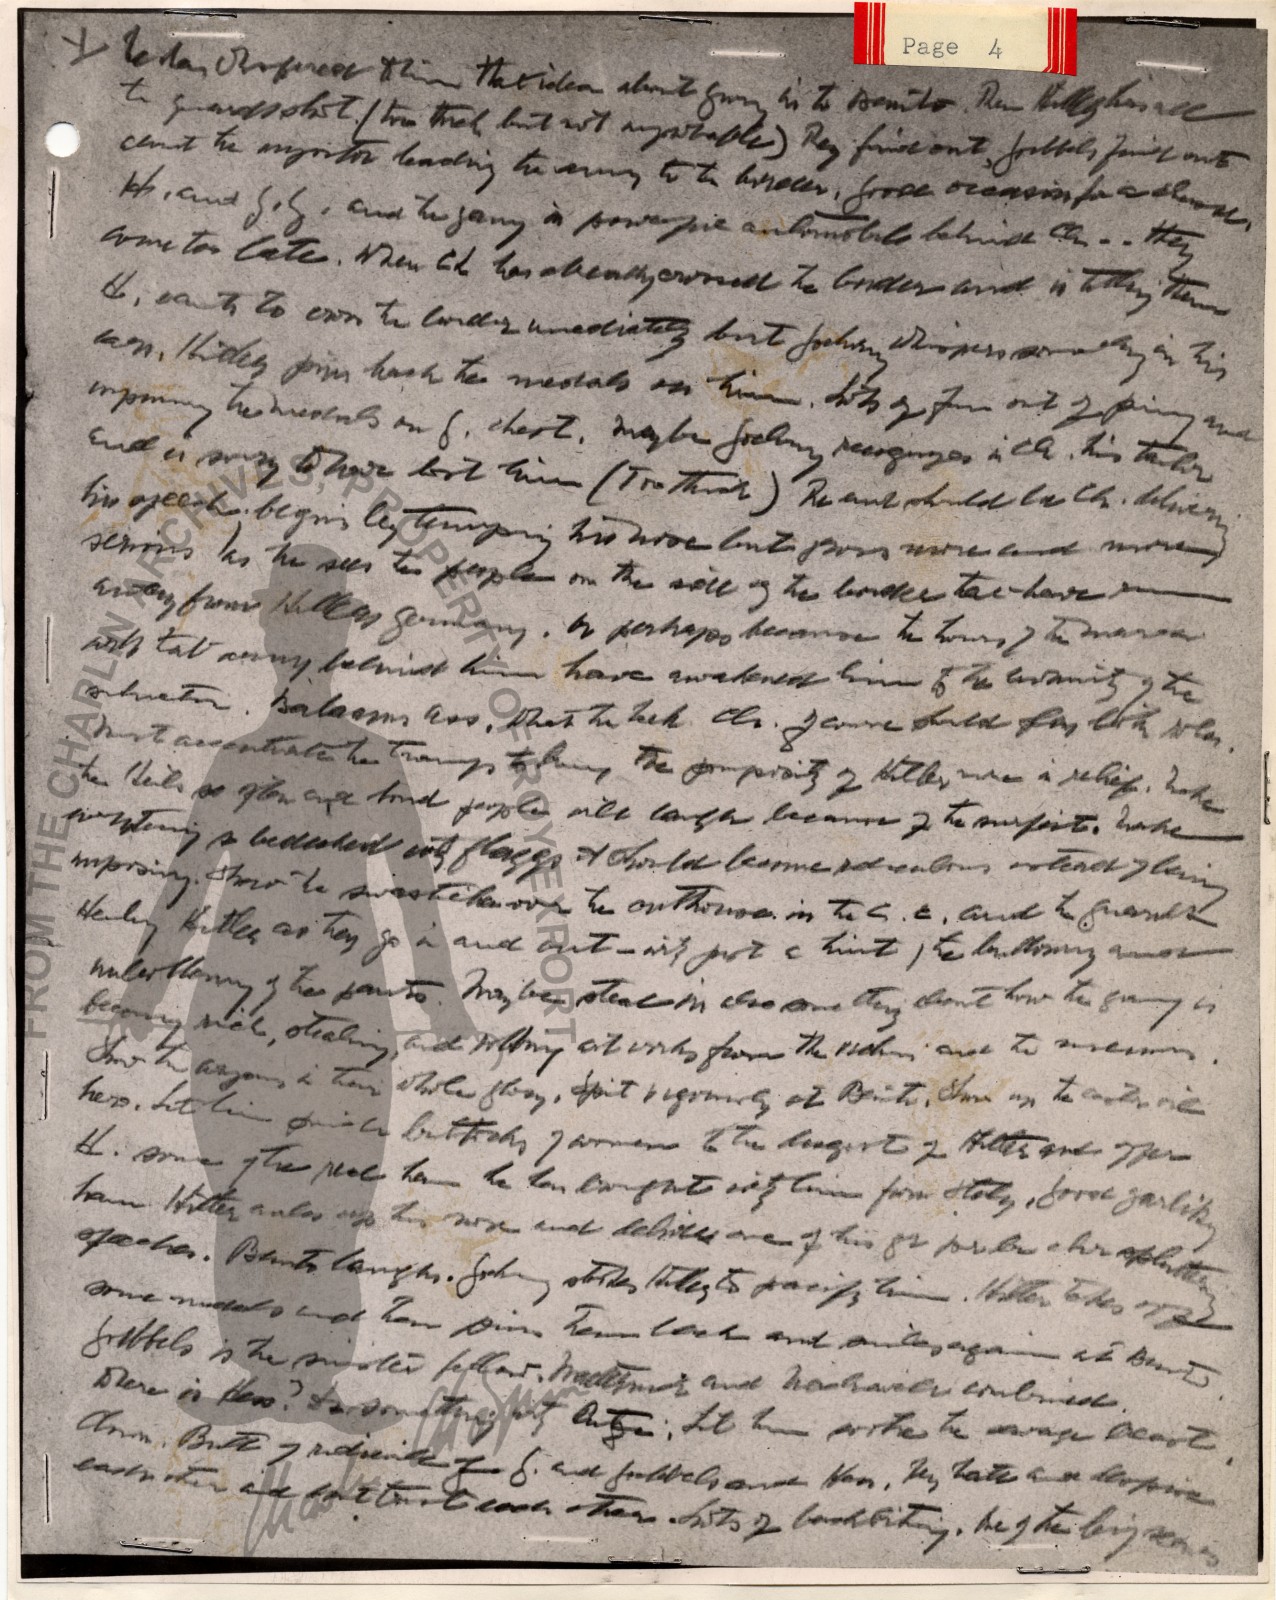 Page 4
he has whispered to him the idea about giving in to Benito. Then Hitler has all
the guards shot. (Too thick but not improbable) They find out, Goebbels find out
about the impostor leading the army to the border. Good occasion for a chase.
H. and G. G. and the gang in powerful automobiles behind Ch... They
come too late. When Ch. has already crossed the border and is telling them
H. wants to cross the border immediately but Goering whispers something in his
ears. Hitler pins back the medals on him. Lots of fun out of pinning and
unpinning the medals on G. chest. Maybe Goering recognizes in Ch. his tailor
and is sorry to have lost him (Too thick) The end should be Ch. delivering
his speech, begins by thumping his nose but grows more and more
serious as he sees the people on the side of the border that have run
away from Hitlers Germany. Or perhaps because the hours of the march
with that army behind him have awakened him to the of the
situation. Balaams ass, what the heck. Ch. of course should play both roles.
Must accentuate the tramp to bring the pomposity of Hitler more in relief. Make
the Heils so often and loud people will laugh because of the surfeit. Make
everything so bedecked with flaggs it should become ridiculous instead of being
imposing. Show the swastika over the outhouse in the C. C. and the guards
Heiling Hitler as they go in and out – with just a hint of the buttoning and
unbuttoning of the pants. Maybe steal in also something about how the gang is
becoming rich, stealing, and robbing art works from the and the museums.
Show the aryans in their whole glory. Spit vigorously at Benito. Show up the
hero. Let him pinch buttocks of women to the disgust of Hitler and offer
H. some of the real ham he has brought with him from Italy. Good garlicky
ham. Hitler up his nose and delivers one of his
speeches. Benito laughs. Goering Hitler to pacify him. Hitler takes off
some medals and then pins them back and smiles again at Benito.
Goebbels is the sinister fellow. Metternich and Machiavelli combined.
Where is Hess? Do something with ; let him the savage beast
down. Butt of ridicule of G. and Goebbels and Hess. They hate and despise
each other and don't trust each other. Lots of backbiting. One of the big scenes
FROM THE CHAPLIN ARCHIVES, PROPERTY OF ROY EXPORT